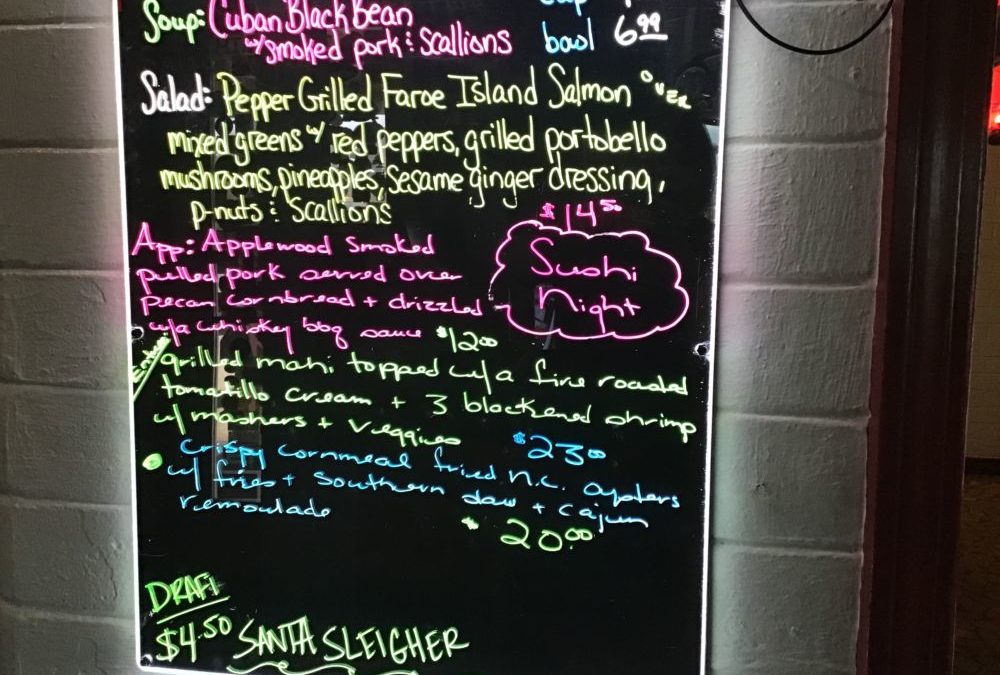 Soup: Cuban Black Bean
w/smoked pork : scallions bowl 6.99
Salad: Pepper Grilled Faroe Island Salmon over
mixed greens w/ red peppers, grilled portobello
mushrooms, pineapples, sesame ginger dressing,
p-nuts : scallions
$14.50
App: Applewood smoked
pulled pork served over
pecan cornbread + drizzled
w/a whiskey bbq sauce $12.00
Sushi
Night
Entrees
grilled mahi topped w/a fire roasted
tomatillo cream + 3 blackened shrimp
w/mashers + veggies $23.00
crispy cornmeal fried n.c. oysters
w/ fries + southern slaw + cajun
remoulade $20.00
DRAFT
$4.50 SANTA SLEIGHER